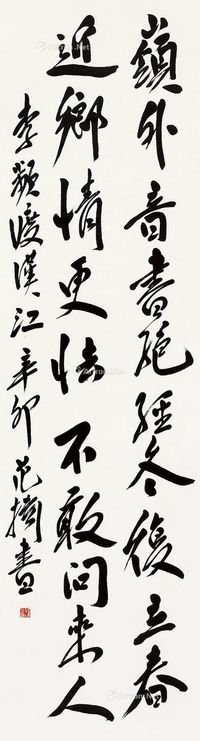 嶺外音書絶經冬復立春
近鄉情更怯不敢問來人
李頻渡漢江辛卯范擒書